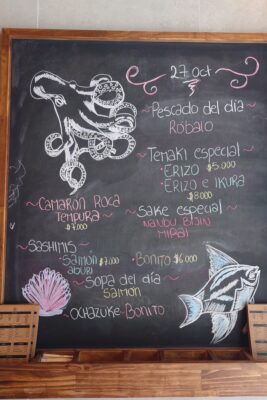 27 oct
~Pescado del día
Róbalo
~Temaki especial~
·ERIZO $5.000
·ERIZO e IKURA
$8.000
~CAMARÓN ROCA~
TEMPURA
$7.000
~Sake especial~
MIRAI
~SASHIMIS~
·Salmón $7.000
aburi
·Bonito $6.000
~Sopa del día~
Salmón
~OCHAZUKE-Bonito~